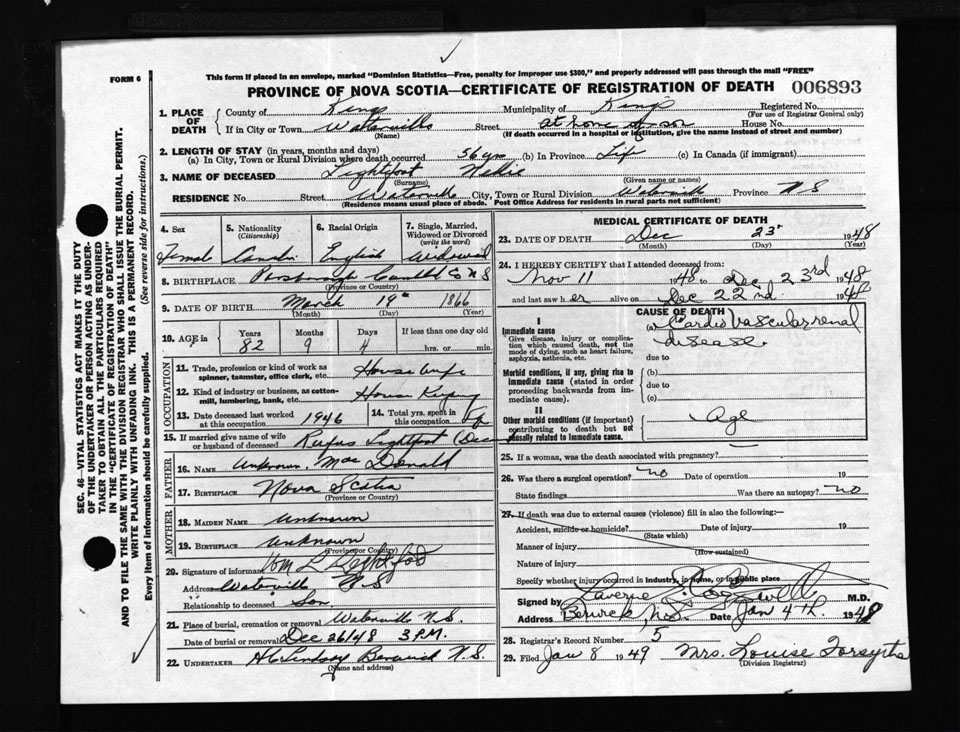 FORM 6
This form if placed in an envelope, marked "Dominion Statistics—Free, penalty for improper use $300," and properly addressed will pass through the mail "FREE"
PROVINCE OF NOVA SCOTIA—CERTIFICATE OF REGISTRATION OF DEATH 006893
1. PLACE OF DEATH County of Kings Municipality of Kings Registered No.
(For use of Registrar General only)
If in City or Town Waterville Street at home of son House No.
(Name) (If death occurred in a hospital or institution, give the name instead of street and number)
2. LENGTH OF STAY (in years, months and days)
(a) In City, Town or Rural Division where death occurred 56 yrs (b) In Province Life (c) In Canada (if immigrant)
3. NAME OF DECEASED Lightfoot Nellie
(Surname) (Given name or names)
RESIDENCE No. Street Waterville City, Town or Rural Division Waterville Province N S
(Residence means usual place of abode. Post Office Address for residents in rural parts not sufficient)
4. Sex 5. Nationality (Citizenship) 6. Racial Origin 7. Single, Married, Widowed or Divorced (write the word)
Female Canadian English Widowed
8. BIRTHPLACE Co N S
(Province or Country)
9. DATE OF BIRTH March 19th 1866
(Month) (Day) (Year)
10. AGE in Years Months Days If less than one day old
82 9 4 hrs. or min.
OCCUPATION
11. Trade, profession or kind of work as spinner, teamster, office clerk, etc. House wife
12. Kind of industry or business, as cotton-mill, lumbering, bank, etc. House Keeping
13. Date deceased last worked at this occupation 1946 14. Total yrs. spent in this occupation
15. If married give name of wife or husband of deceased Rufus Lightfoot (Dec
FATHER
16. NAME Unknown Mac Donald
17. BIRTHPLACE Nova Scotia
(Province or Country)
MOTHER
18. MAIDEN NAME Unknown
19. BIRTHPLACE Unknown
(Province or Country)
20. Signature of informant Lightfoot
Address Waterville N S
Relationship to deceased Son
21. Place of burial, cremation or removal Waterville N.S.
Date of burial or removal Dec 26/48 3 P.M.
22. UNDERTAKER Lindsay Berwick N.S.
(Name and address)
MEDICAL CERTIFICATE OF DEATH
23. DATE OF DEATH Dec 23rd 1948
(Month) (Day) (Year)
24. I HEREBY CERTIFY that I attended deceased from:
Nov 11 1948 to Dec 23rd 1948
and last saw her alive on Dec 22nd 1948
CAUSE OF DEATH
I
Immediate cause
Give disease, injury or complication which caused death, not the mode of dying, such as heart failure, asphyxia, asthenia, etc.
(a) Cardio vascular renal disease.
due to
Morbid conditions, if any, giving rise to immediate cause (stated in order proceeding backwards from immediate cause).
(b)
due to
(c)
II
Other morbid conditions (if important) contributing to death but not causally related to immediate cause.
Age
25. If a woman, was the death associated with pregnancy?
26. Was there a surgical operation? no Date of operation 19
State findings Was there an autopsy? no
27. If death was due to external causes (violence) fill in also the following:—
Accident, suicide or homicide? Date of injury 19
(State which)
Manner of injury
(How sustained)
Nature of injury
Specify whether injury occurred in industry, in home, or in public place
Signed by Laverne M.D.
Address Berwick N.S. Date Jan 4th 1948
28. Registrar's Record Number 5
29. Filed Jan 8 1949 Mrs. Louise Forsythe
(Division Registrar)
SEC. 46—VITAL STATISTICS ACT MAKES IT THE DUTY
OF THE UNDERTAKER OR PERSON ACTING AS UNDER-
TAKER TO OBTAIN ALL THE PARTICULARS REQUIRED
IN THE "CERTIFICATE OF REGISTRATION OF DEATH"
AND TO FILE THE SAME WITH THE DIVISION REGISTRAR WHO SHALL ISSUE THE BURIAL PERMIT.
WRITE PLAINLY WITH UNFADING INK. THIS IS A PERMANENT RECORD.
Every item of information should be carefully supplied. (See reverse side for instructions.)